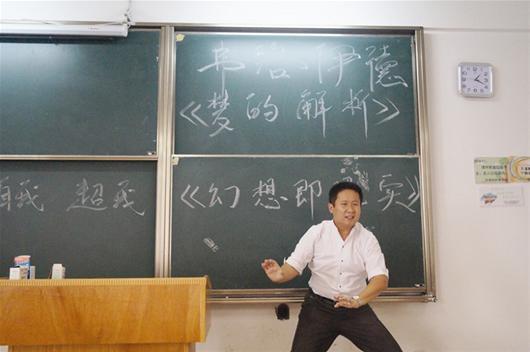 弗洛伊德
《梦的解析》
自我 超我
《幻想即 实》